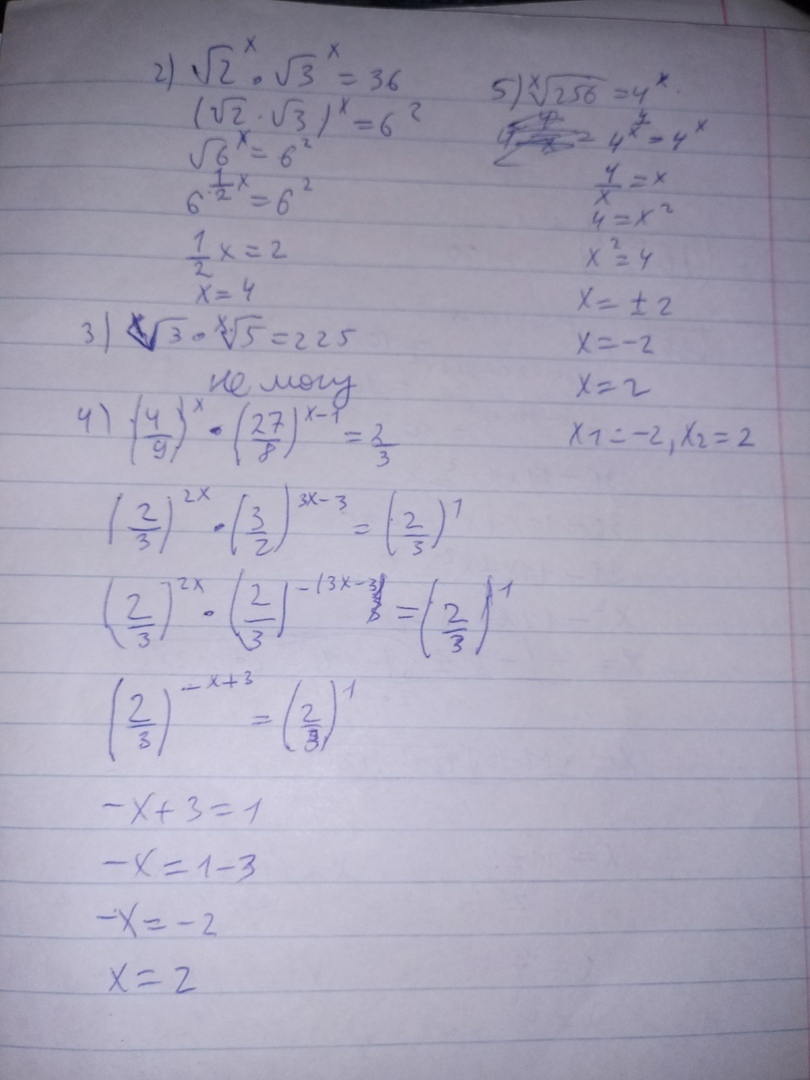 2) √2^x · √3^x = 36
(√2 · √3)^x = 6^2
√6^x = 6^2
6^(1/2 x) = 6^2
1/2 x = 2
x = 4
3) ^x√3 · ^x√5 = 225
не могу
4) (4/9)^x · (27/8)^(x-1) = 2/3
(2/3)^(2x) · (3/2)^(3x-3) = (2/3)^1
(2/3)^(2x) · (2/3)^(-(3x-3)) = (2/3)^1
(2/3)^(-x+3) = (2/3)^1
-x+3=1
-x=1-3
-x=-2
x=2
5) ^x√256 = 4^x
4^(4/x) = 4^x
4/x = x
4 = x^2
x^2 = 4
x = ± 2
x = -2
x = 2
x1 = -2, x2 = 2